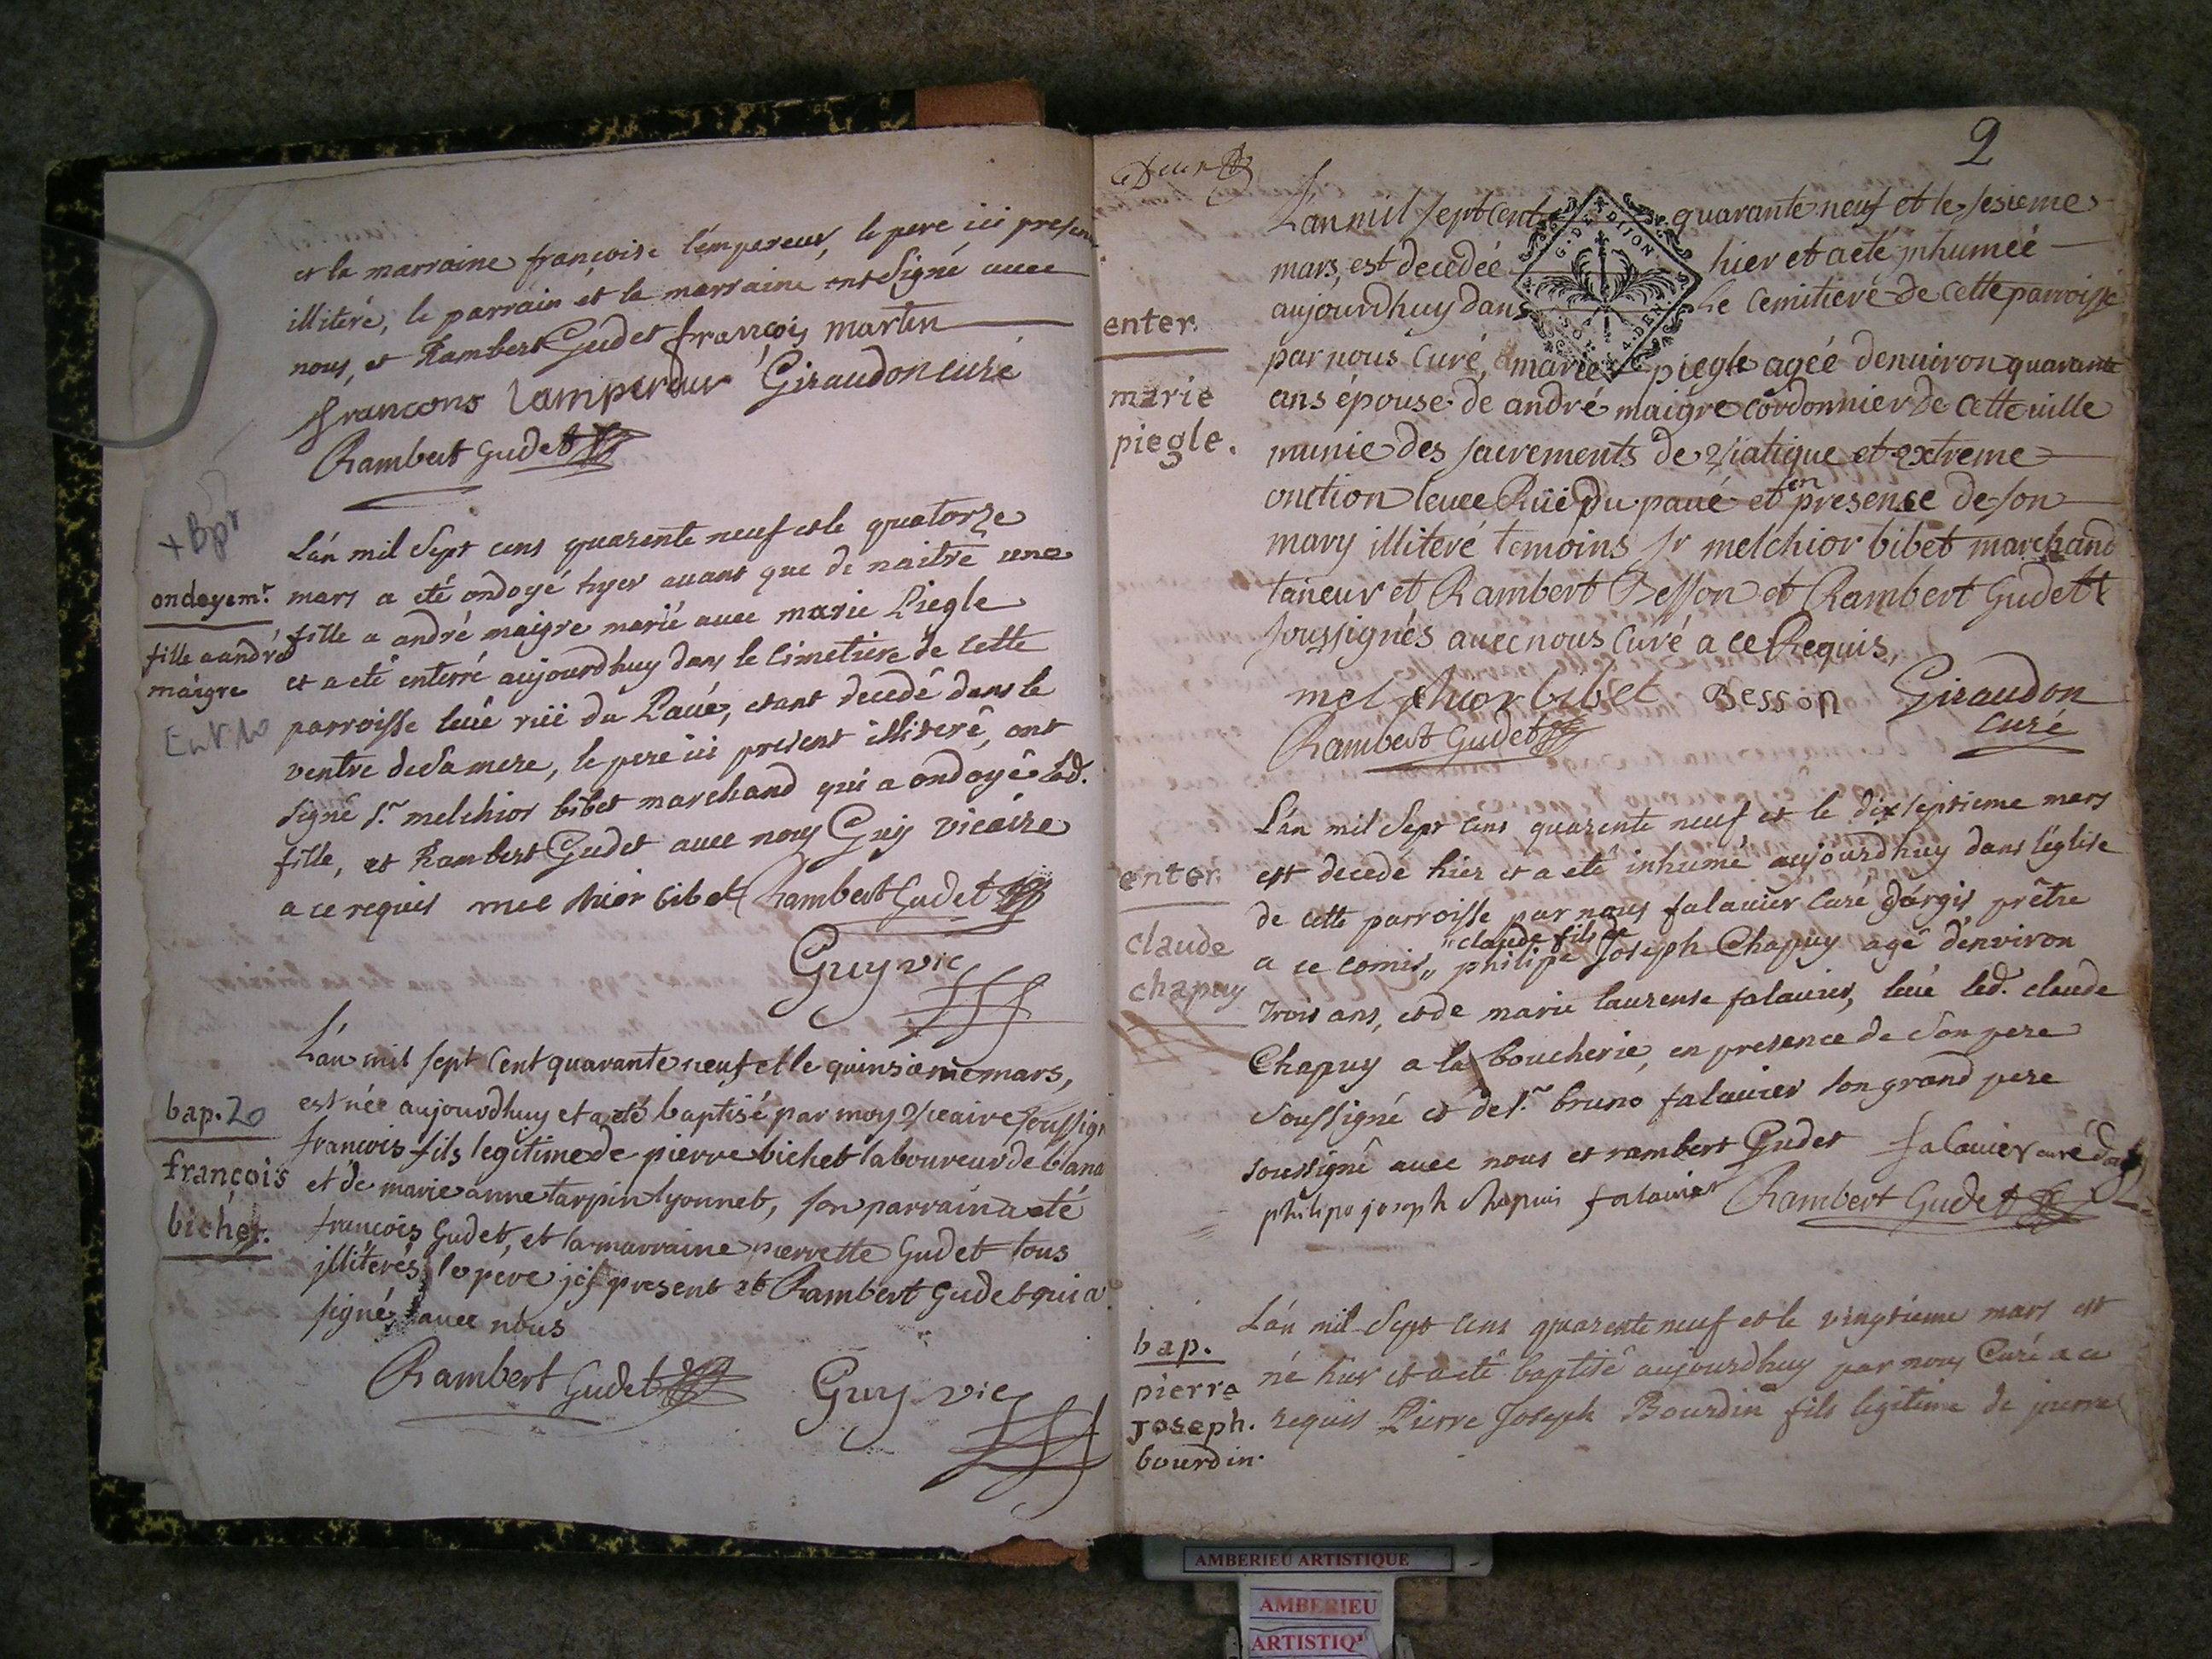 et la marraine françoise l'émpereur, le pere ici present
illiteré, le parrain et la marraine ont Signé avec
nous, et Rambert Gudet françois martin
francons lamperour Giraudon curé
Rambert Gudet
+ Bpt
ondoyemt.
fille a andré
maigre
L'án mil Sept cens quarente neuf et le quatorze
mars a été ondoyé hyer avant que de naitre une
fille a andré maigre marié avec marie Piegle
et a eté enterré aujourdhuy dans le cimetiere de cette
parroisse levé rüe du Pavé, etant decedé dans le
ventre de Sa mere, le pere ici present illiteré, ont
Signé Sr. melchior bibet marchand qui a ondoyé lad.
fille, et Rambert Gudet avec nous Guy vicaire
a ce requis mel chior bibet Rambert Gudet
Guy vic
bap. 20
françois
bichet.
L'an mil sept Cent quarante neuf et le quinsiémemars,
est née aujourdhuy et a eté baptisé par moy Vicaire soussigné
francois fils legitime de pierre bichet laboureur de blana
et de marie anne tarpin lyonnet, son parrain a eté
francois Gudet, et la marraine pierrette Gudet tous
jlliterés, le pere jci present et Rambert Gudet qui a
signé avec nous
Rambert Gudet Guy vic
2
enter.
marie
piegle.
L'an mil sept Cent quarante neuf et le sesieme
mars, est decedée hier et a eté jnhumée
aujourdhuy dans Le Cemitieré de cette parroisse
G. DE DIJON
SOLS 4. DEN.
par nous Curé, marie piegle agée denuiron quarante
ans épouse de andré maigre cordonnier de cette ville
munie des sacrements de Viatique et extreme
onction levee Rüe Du pavé et en presense de son
mary illiteré temoins sr melchior bibet marchand
taneur et Rambert Besson et Rambert Gudett
soussignés avec nous Curé a ce Requis,
mel chior bibet Besson Giraudon
Rambert Gudet curé
enter.
claude
chapuy
L'án mil Sept cens quarente neuf et le dix septieme mars
est decede hier et a eté inhumé aujourdhuy dans l'église
de cette parroisse par nous falavier Curé d'argis prêtre
a ce comis, " claude fils de philipe Joseph Chapuy agé d'environ
trois ans, et de marie laurense falavier, levé led. claude
Chapuy a la boucherie, en presence de Son pere
Soussigné et de Sr. bruno falavier Son grand pere
soussigné avec nous et rambert Gudet falavier curé d'argis
philipe joseph chapuis falavier Rambert Gudet
bap.
pierre
Joseph.
bourdin.
L'án mil Sept cens quarente neuf et le vingtieme mars est
né hier et a eté baptisé aujourdhuy par nous Curé a ce
requis Pierre Joseph Bourdin fils legitime de pierre
AMBERIEU ARTISTIQUE
AMBERIEU
ARTISTIQU